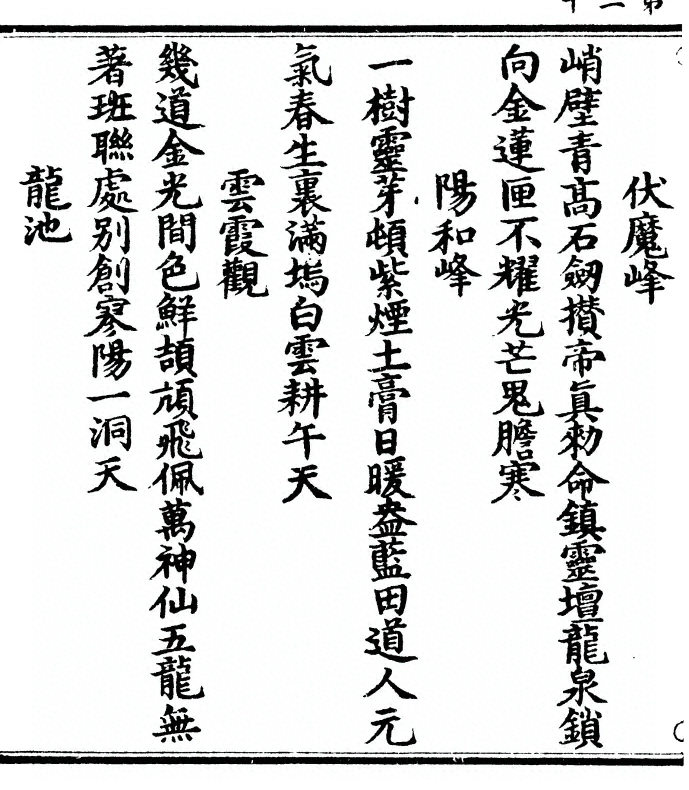 伏魔峰
峭壁青高石劒攅帝眞勑命鎮靈壇龍泉鎖
向金蓮匣不耀光芒鬼膽寒
陽和峰
一樹靈芽頓紫煙土膏日暖盎藍田道人元
氣春生裏滿塢白雲耕午天
雲霞觀
幾道金光間色鮮頡頏飛佩萬神仙五龍無
著班聯處别創寥陽一洞天
龍池